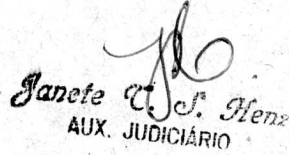 Janete T. S. Henz
AUX. JUDICIÁRIO